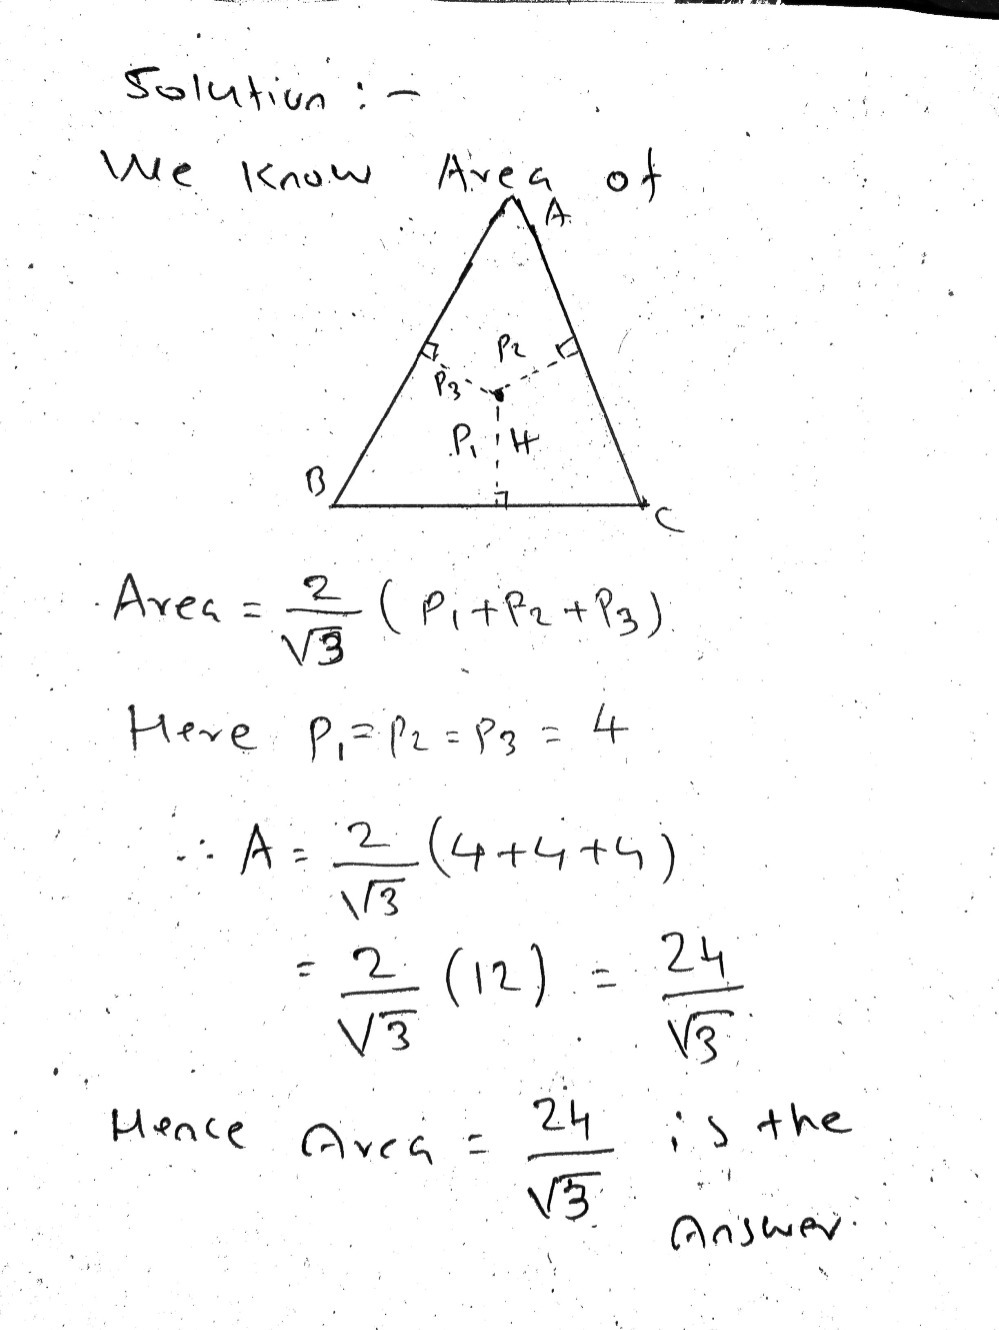 Solution :-
We Know Area of
A
P2
P3
P1 H
B
C
Area = 2/√3 (P1+P2+P3)
Here P1=P2=P3 = 4
∴ A = 2/√3 (4+4+4)
= 2/√3 (12) = 24/√3
Hence Area = 24/√3 is the
Answer.